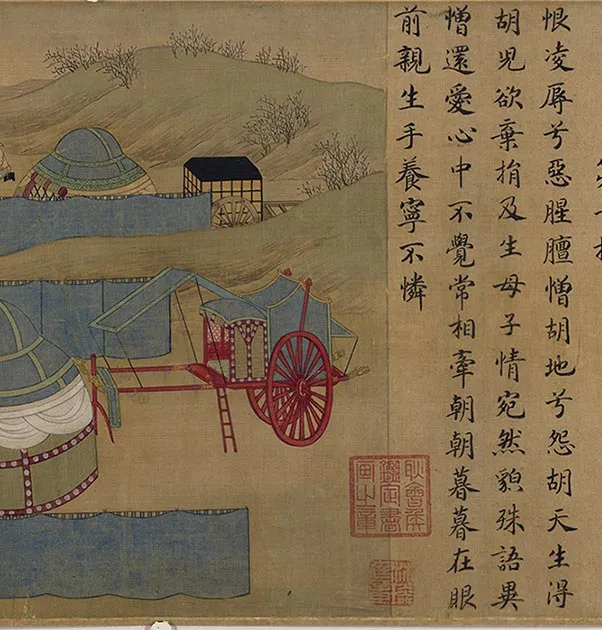 恨凌辱兮惡腥膻憎胡地兮怨胡天生得
胡兒欲棄捐及生母子情宛然貌殊語異
憎還愛心中不覺常相牽朝朝暮暮在眼
前親生手養寧不憐
耿會侯
鑑定書
畫之章